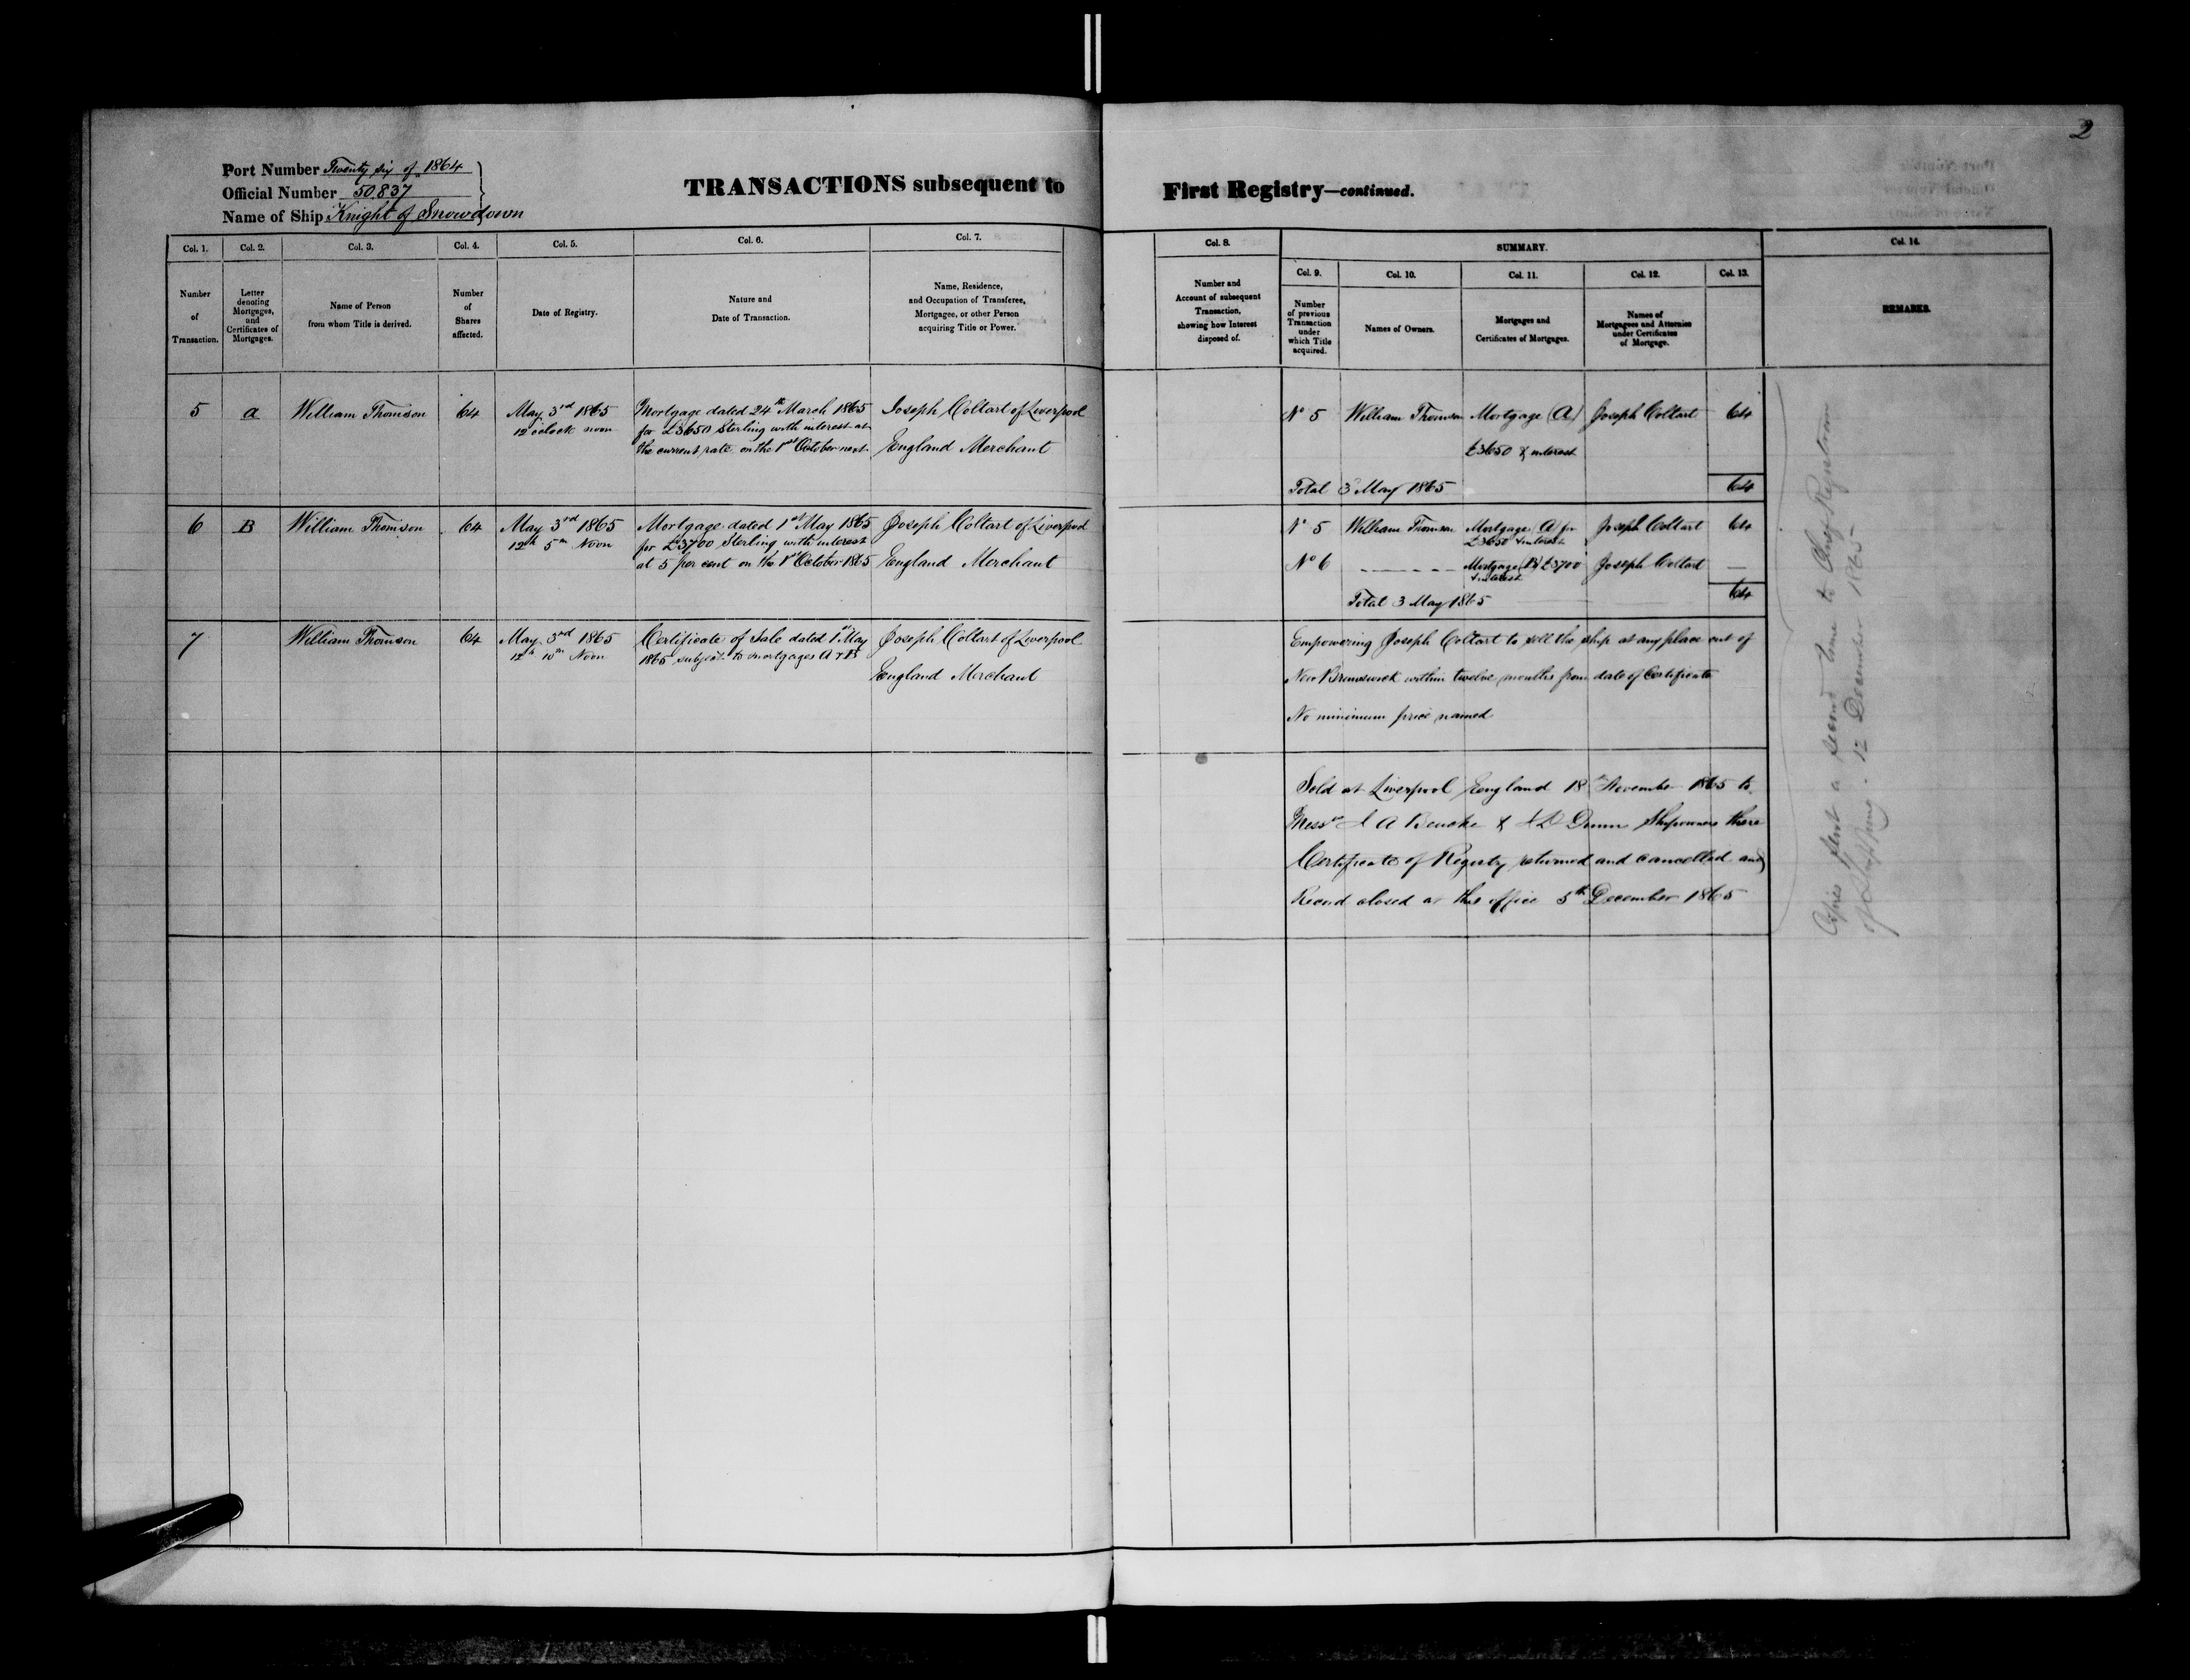 2
Port Number Twenty six of 1864
Official Number 50,837
Name of Ship Knight of Snowdown
TRANSACTIONS subsequent to First Registry—continued.
Col. 1. Col. 2. Col. 3. Col. 4. Col. 5. Col. 6. Col. 7. Col. 8. SUMMARY. Col. 14.
Col. 9. Col. 10. Col. 11. Col. 12. Col. 13.
Number
of
Transaction.
Letter
denoting
Mortgages,
and
Certificates of
Mortgages.
Name of Person
from whom Title is derived.
Number
of
Shares
affected.
Date of Registry.
Nature and
Date of Transaction.
Name, Residence,
and Occupation of Transferee,
Mortgagee, or other Person
acquiring Title or Power.
Number and
Account of subsequent
Transaction,
showing how Interest
disposed of.
Number
of previous
Transaction
under
which Title
acquired.
Names of Owners.
Mortgages and
Certificates of Mortgages.
Names of
Mortgagees and Attornies
under Certificates
of Mortgage.
REMARKS.
5
a
William Thomson
64
May 3rd 1865
12 oclock noon
Mortgage dated 24th March 1865
for £3650 Sterling with interest at
the current rate on the 1st October next
Joseph Coltart of Liverpool
England Merchant
No 5 William Thomson Mortgage (A) Joseph Coltart 64
£3650 & interest
Total 3 May 1865 64
6
B
William Thomson
64
May 3rd 1865
12h 5m Noon
Mortgage dated 1st May 1865
for £3700 Sterling with interest
at 5 per cent on the 1st October 1865
Joseph Coltart of Liverpool
England Merchant
No 5 William Thomson Mortgage (A) for Joseph Coltart 64
£3650 & interest
No 6 - - - - - - Mortgage (B) £3700 Joseph Coltart —
& interest
Total 3 May 1865 64
7
William Thomson
64
May 3rd 1865
12h 10m Noon
Certificate of Sale dated 1st May
1865 subject to mortgages A & B
Joseph Coltart of Liverpool
England Merchant
Empowering Joseph Coltart to sell the ship at any place out of
New Brunswick within twelve months from date of Certificate
No minimum price named
Sold at Liverpool England 18th November 1865 to
Messrs A & Dunn Shipowners there
Certificate of Registry returned and cancelled and
Record closed at this office 5th December 1865
Copies sent a second time to Registrar
of Shipping. 12 December 1865